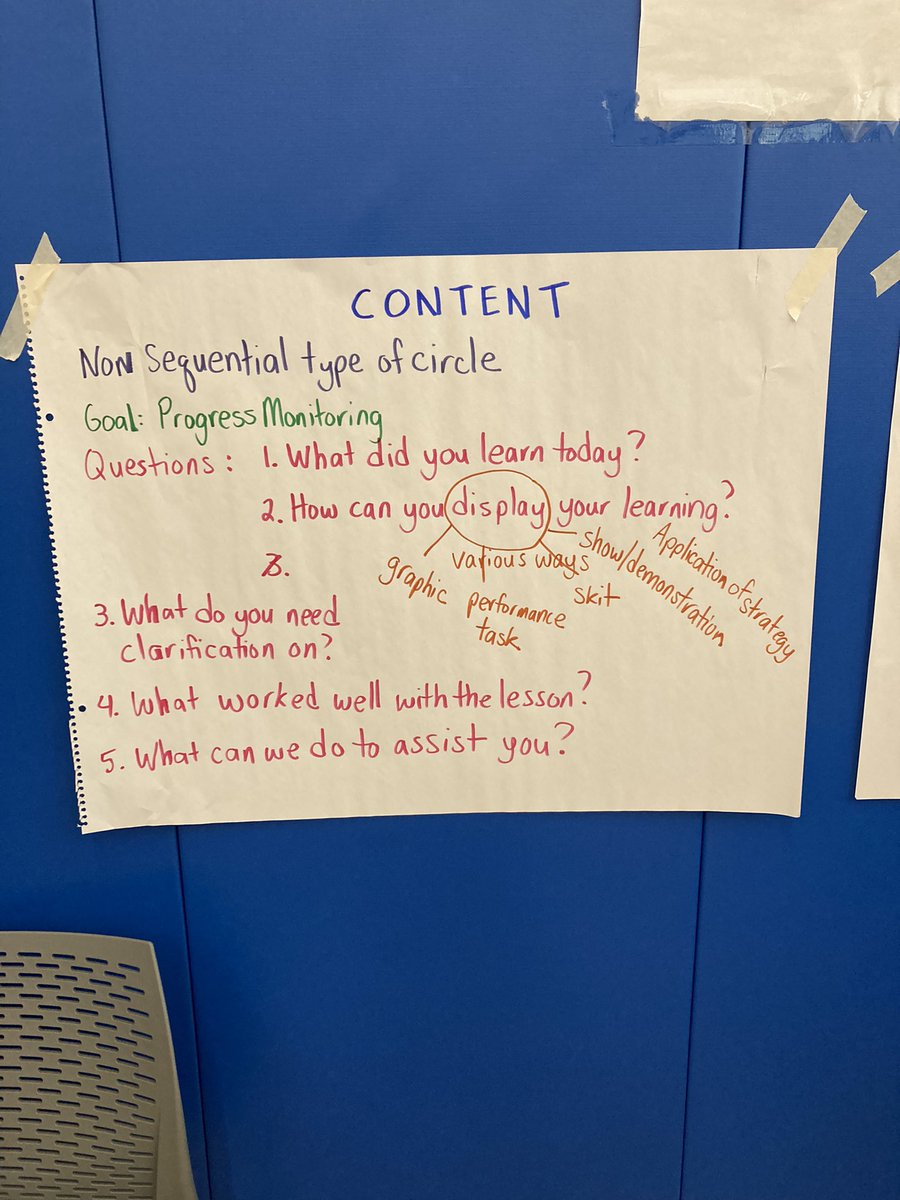 CONTENT
Non Sequential type of circle
Goal: Progress Monitoring
Questions: 1. What did you learn today?
2. How can you display your learning?
various ways
graphic
performance
task
skit
show/demonstration
Application of strategy
3.
3. What do you need
clarification on?
4. What worked well with the lesson?
5. What can we do to assist you?